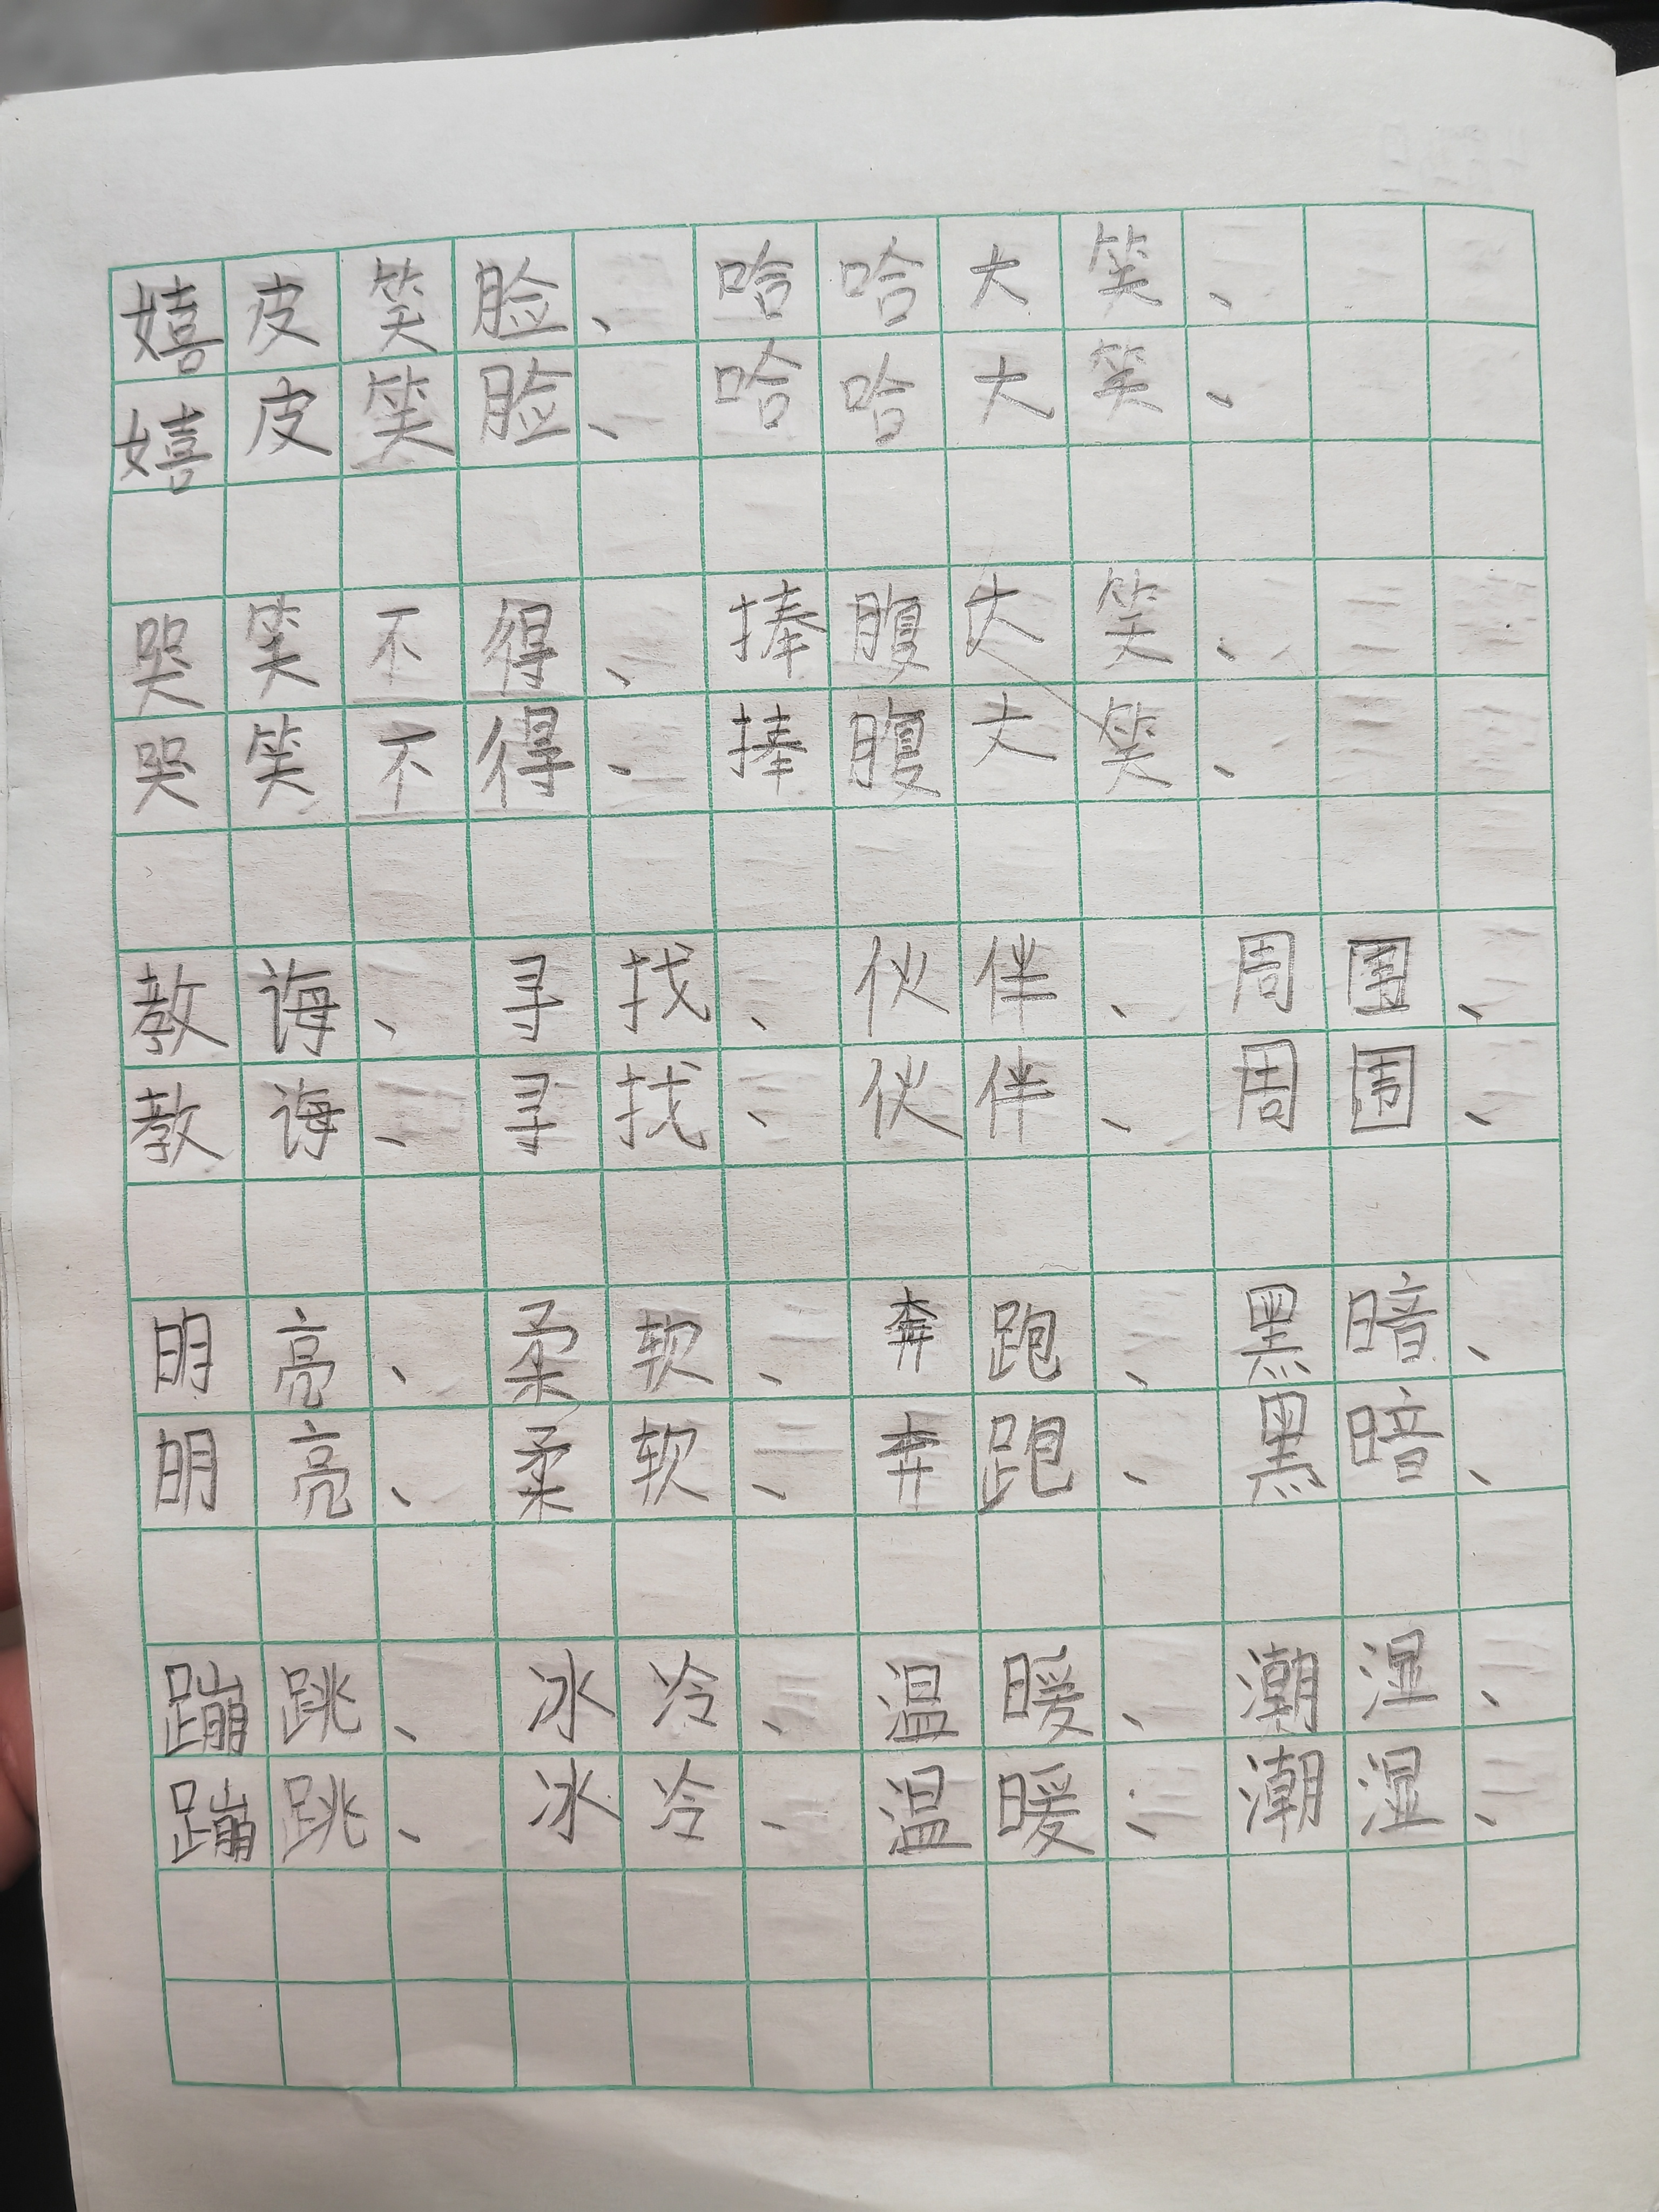 嬉皮笑脸、哈哈大笑、
嬉皮笑脸、哈哈大笑、
哭笑不得、捧腹大笑、
哭笑不得、捧腹大笑、
教诲、寻找、伙伴、周围、
教诲、寻找、伙伴、周围、
明亮、柔软、奔跑、黑暗、
明亮、柔软、奔跑、黑暗、
蹦跳、冰冷、温暖、潮湿、
蹦跳、冰冷、温暖、潮湿、